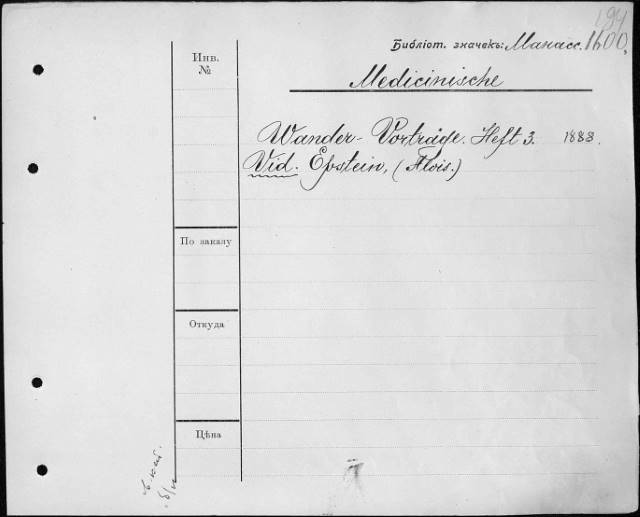 194
Библіот. значекъ: Манасс. 1600,
Инв.
№
Medicinische
Wander-Vorträge. Heft 3. 1888.
Vid. Epstein, (Alois.)
По заказу
Откуда
Цѣна